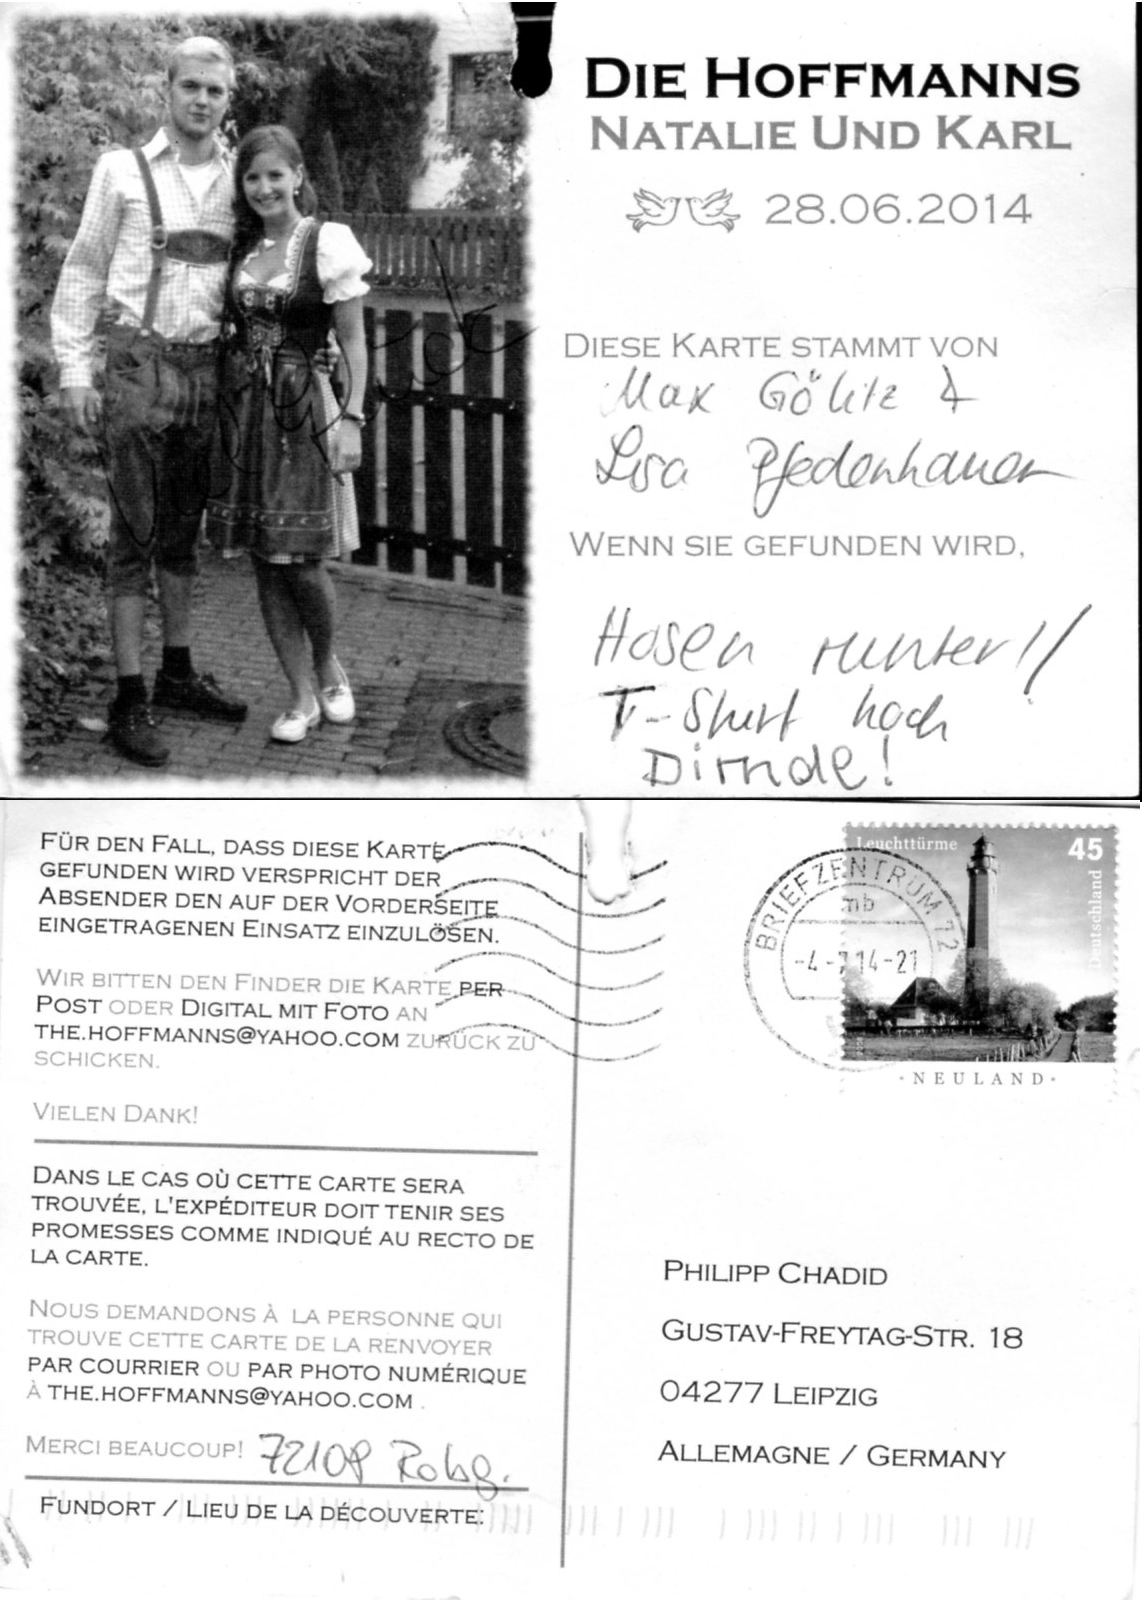 DIE HOFFMANNS
NATALIE UND KARL
28.06.2014
DIESE KARTE STAMMT VON
Max Gölitz &
Lisa Pfedenhauer
WENN SIE GEFUNDEN WIRD,
Hosen runter!!
T-Shirt hoch
Dirndl!
FÜR DEN FALL, DASS DIESE KARTE
GEFUNDEN WIRD VERSPRICHT DER
ABSENDER DEN AUF DER VORDERSEITE
EINGETRAGENEN EINSATZ EINZULÖSEN.
WIR BITTEN DEN FINDER DIE KARTE PER
POST ODER DIGITAL MIT FOTO AN
THE.HOFFMANNS@YAHOO.COM ZURÜCK ZU
SCHICKEN.
VIELEN DANK!
DANS LE CAS OÙ CETTE CARTE SERA
TROUVÉE, L'EXPÉDITEUR DOIT TENIR SES
PROMESSES COMME INDIQUÉ AU RECTO DE
LA CARTE.
NOUS DEMANDONS À LA PERSONNE QUI
TROUVE CETTE CARTE DE LA RENVOYER
PAR COURRIER OU PAR PHOTO NUMÉRIQUE
À THE.HOFFMANNS@YAHOO.COM .
MERCI BEAUCOUP! 72108 Robg.
FUNDORT / LIEU DE LA DÉCOUVERTE:
Leuchttürme 45
Deutschland
BRIEFZENTRUM 72
mb
-4-7.14-21
·NEULAND·
PHILIPP CHADID
GUSTAV-FREYTAG-STR. 18
04277 LEIPZIG
ALLEMAGNE / GERMANY